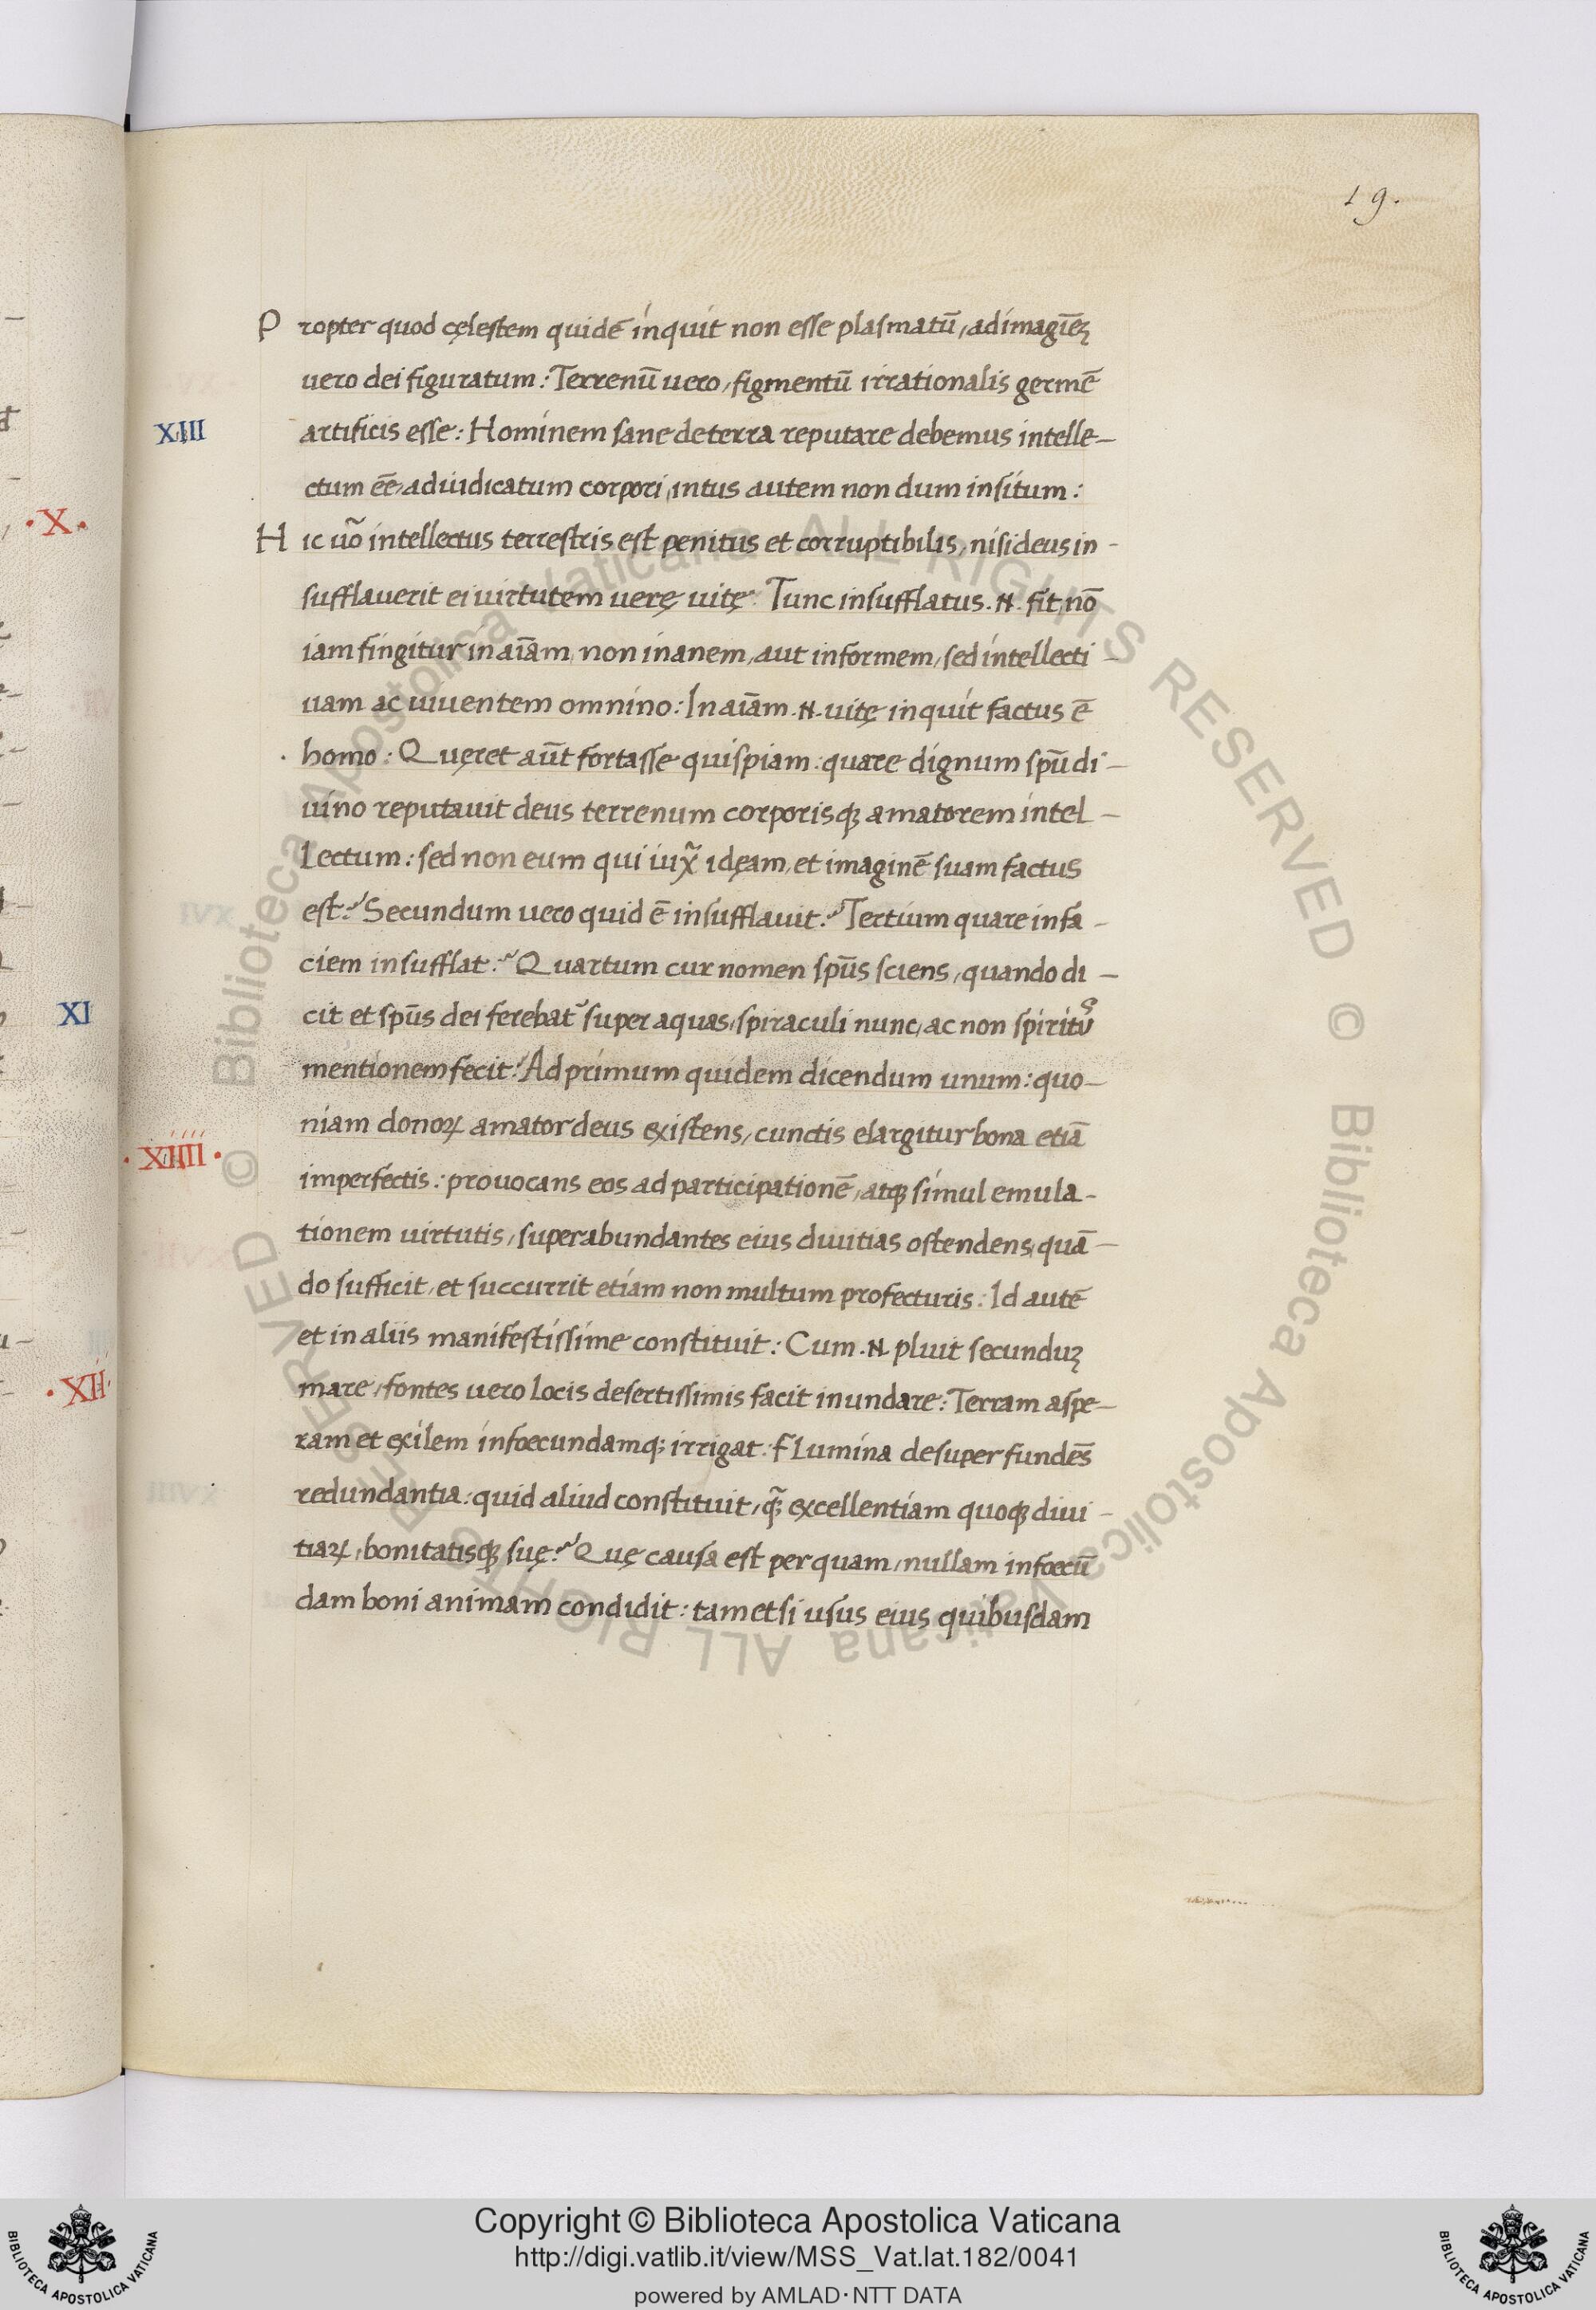 19.
Propter quod cęlestem quidē inquit non esse plasmatū, ad imagīeȝ
uero dei figuratum: Terrenū uero, figmentū irrationalis germē
XIII
artificis esse: Hominem sane de terra reputare debemus intelle-
ctum eē, adiudicatum corpori, intus autem non dum insitum:
Hic uō intellectus terrestris est penitus et corruptibilis, nisi deus in-
sufflauerit ei uirtutem uerę uitę. Tunc insufflatus .N. fit, nō
iam fingitur in aīam, non inanem, aut informem, sed intellecti-
uam ac uiuentem omnino: In aīam .N. uitę inquit factus ē
homo: Quęret aūt fortasse quispiam: quare dignum spū di-
uino reputauit deus terrenum corporisqꝫ amatorem intel-
lectum: sed non eum qui iux̄ idęam, et imaginē suam factus
est? Secundum uero quid ē insufflauit? Tertium quare in fa-
ciem insufflat? Quartum cur nomen spūs sciens, quando di-
cit et spūs dei ferebat᷑ super aquas, spiraculi nunc, ac non spiritꝰ
mentionem fecit? Ad primum quidem dicendum unum: quo-
niam donoꝝ amator deus existens, cunctis elargitur bona etiā
.XIIII.
imperfectis: prouocans eos ad participationē, atqꝫ simul emula-
tionem uirtutis, superabundantes eius diuitias ostendens, quā-
do sufficit, et succurrit etiam non multum profecturis: Id autē
et in aliis manifestissime constituit: Cum .N. pluit secunduȝ
mare, fontes uero locis desertissimis facit inundare: Terram aspe-
ram et exilem infoecundamqꝫ irrigat: Flumina desuper fundēs
redundantia: quid aliud constituit, qꝫ̄ excellentiam quoqꝫ diui-
tiaꝝ, bonitatisqꝫ suę? Quę causa est per quam, nullam infoecū
dam boni animam condidit: tametsi usus eius quibusdam
.X.
XI
.XII.
© Biblioteca Apostolica Vaticana ALL RIGHTS RESERVED
© Biblioteca Apostolica Vaticana ALL RIGHTS RESERVED
Copyright © Biblioteca Apostolica Vaticana
http://digi.vatlib.it/view/MSS_Vat.lat.182/0041
powered by AMLAD·NTT DATA
BIBLIOTECA APOSTOLICA VATICANA
BIBLIOTECA APOSTOLICA VATICANA